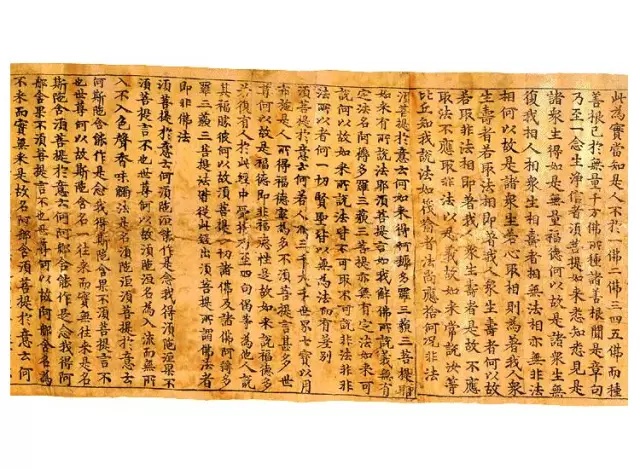 此為實當知是人不於一佛二佛三四五佛而種
善根已於無量千万佛所種諸善根聞是章句
乃至一念生淨信者須菩提如来悉知悉見是
諸衆生得如是無量福德何以故是諸衆生無
復我相人相衆生相壽者相無法相亦無非法
相何以故是諸衆生若心取相則為著我人衆
生壽者若取法相即著我人衆生壽者何以故
若取非法相即著我人衆生壽者是故不應
取法不應取非法以是義故如来常說汝等
比丘知我說法如筏喻者法尚應捨何况非法
須菩提於意云何如来得阿耨多羅三藐三菩提耶
如来有所說法耶須菩提言如我解佛所說義無有
定法名阿耨多羅三藐三菩提亦無有定法如来可
說何以故如来所說法皆不可取不可說非法非非
法所以者何一切賢聖皆以無為法而有差別
須菩提於意云何若人滿三千大千世界七寶以用
布施是人所得福德寧為多不須菩提言甚多世
尊何以故是福德即非福德性是故如来說福德多
若復有人於此經中受持乃至四句偈等為他人說
其福勝彼何以故須菩提一切諸佛及諸佛阿耨多
羅三藐三菩提法皆從此經出須菩提所謂佛法者
即非佛法
須菩提於意云何須陁洹能作是念我得須陁洹果不
須菩提言不也世尊何以故須陁洹名為入流而無所
入不入色聲香味觸法是名須陁洹須菩提於意云
何斯陁含能作是念我得斯陁含果不須菩提言不
也世尊何以故斯陁含名一往来而實無往来是名
斯陁含須菩提於意云何阿那含能作是念我得阿
那含果不須菩提言不也世尊何以故阿那含名為
不来而實無来是故名阿那含須菩提於意云何